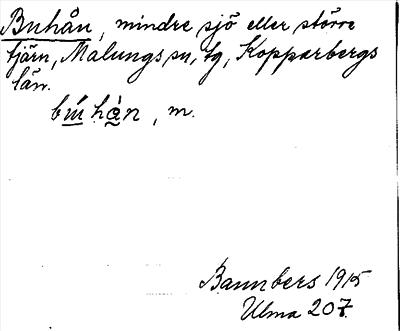 Buhån, mindre sjö eller större
tjärn, Malungs sn, tg, Kopparbergs
län.
m.
Bannbers 1915
Ulma 207.